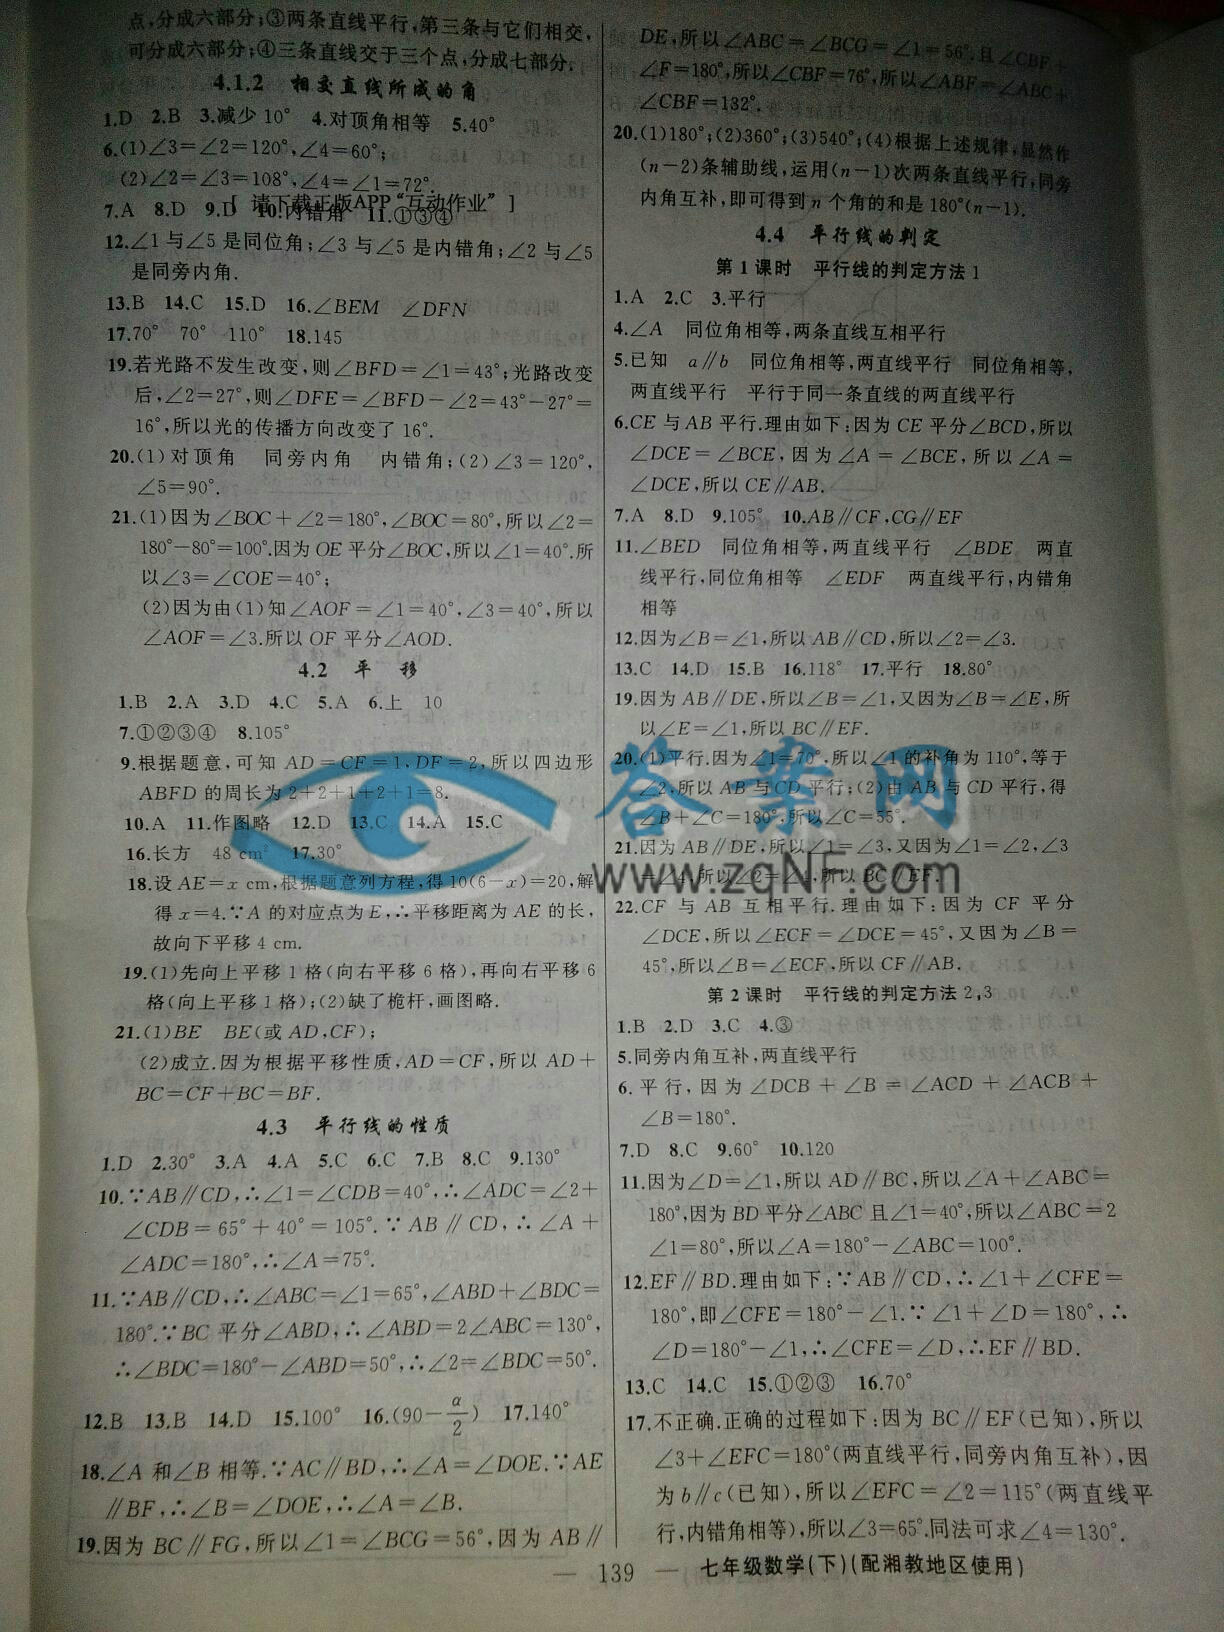 点,分成六部分;③两条直线平行,第三条与它们相交,
可分成六部分;④三条直线交于三个点,分成七部分.
4.1.2 相交直线所成的角
1.D 2.B 3.减少 10° 4.对顶角相等 5.40°
6.(1)∠3=∠2=120°,∠4=60°;
(2)∠2=∠3=108°,∠4=∠1=72°.
[ 请下载正版APP“互动作业” ]
7.A 8.D 9.D 10.内错角 11.①③④
12.∠1与∠5是同位角;∠3与∠5是内错角;∠2与∠5
是同旁内角.
13.B 14.C 15.D 16.∠BEM ∠DFN
17.70° 70° 110° 18.145
19.若光路不发生改变,则∠BFD=∠1=43°;光路改变
后,∠2=27°,则∠DFE=∠BFD-∠2=43°-27°=
16°,所以光的传播方向改变了16°.
20.(1)对顶角 同旁内角 内错角;(2)∠3=120°,
∠5=90°.
21.(1)因为∠BOC+∠2=180°,∠BOC=80°,所以∠2=
180°-80°=100°.因为OE平分∠BOC,所以∠1=40°.所
以∠3=∠COE=40°;
(2)因为由(1)知∠AOF=∠1=40°,∠3=40°,所以
∠AOF=∠3.所以OF平分∠AOD.
4.2 平 移
1.B 2.A 3.D 4.C 5.A 6.上 10
7.①②③④ 8.105°
9.根据题意,可知AD=CF=1,DF=2,所以四边形
ABFD的周长为2+2+1+2+1=8.
10.A 11.作图略 12.D 13.C 14.A 15.C
16.长方 48 cm² 17.30°
18.设AE=x cm,根据题意列方程,得10(6-x)=20,解
得x=4.∵A的对应点为E,∴平移距离为AE的长,
故向下平移4 cm.
19.(1)先向上平移1格(向右平移6格),再向右平移6
格(向上平移1格);(2)缺了桅杆,画图略.
21.(1)BE BE(或AD,CF);
(2)成立.因为根据平移性质,AD=CF,所以AD+
BC=CF+BC=BF.
4.3 平行线的性质
1.D 2.30° 3.A 4.A 5.C 6.C 7.B 8.C 9.130°
10.∵AB∥CD,∴∠1=∠CDB=40°,∴∠ADC=∠2+
∠CDB=65°+40°=105°.∵AB∥CD,∴∠A+
∠ADC=180°,∴∠A=75°.
11.∵AB∥CD,∴∠ABC=∠1=65°,∠ABD+∠BDC=
180°.∵BC平分∠ABD,∴∠ABD=2∠ABC=130°,
∴∠BDC=180°-∠ABD=50°,∴∠2=∠BDC=50°.
12.B 13.B 14.D 15.100° 16.(90-α/2) 17.140°
18.∠A和∠B相等.∵AC∥BD,∴∠A=∠DOE.∵AE
∥BF,∴∠B=∠DOE,∴∠A=∠B.
19.因为BC∥FG,所以∠1=∠BCG=56°,因为AB∥
DE,所以∠ABC=∠BCG=∠1=56°.且∠CBF+
∠F=180°,所以∠CBF=76°,所以∠ABF=∠ABC+
∠CBF=132°.
20.(1)180°;(2)360°;(3)540°;(4)根据上述规律,显然作
(n-2)条辅助线,运用(n-1)次两条直线平行,同旁
内角互补,即可得到n个角的和是180°(n-1).
4.4 平行线的判定
第1课时 平行线的判定方法1
1.A 2.C 3.平行
4.∠A 同位角相等,两条直线互相平行
5.已知 a∥b 同位角相等,两直线平行 同位角相等,
两直线平行 平行于同一条直线的两直线平行
6.CE与AB平行.理由如下:因为CE平分∠BCD,所以
∠DCE=∠BCE,因为∠A=∠BCE,所以∠A=
∠DCE,所以CE∥AB.
7.A 8.D 9.105° 10.AB∥CF,CG∥EF
11.∠BED 同位角相等,两直线平行 ∠BDE 两直
线平行,同位角相等 ∠EDF 两直线平行,内错角
相等
12.因为∠B=∠1,所以AB∥CD,所以∠2=∠3.
13.C 14.D 15.B 16.118° 17.平行 18.80°
19.因为AB∥DE,所以∠B=∠1,又因为∠B=∠E,所
以∠E=∠1,所以BC∥EF.
20.(1)平行.因为∠1=70°,所以∠1的补角为110°,等于
∠2,所以AB与CD平行;(2)由AB与CD平行,得
∠B+∠C=180°,所以∠C=55°.
21.因为AB∥DE,所以∠1=∠3,又因为∠1=∠2,∠3
=∠4,所以∠2=∠4,所以BC∥EF.
22.CF与AB互相平行.理由如下:因为CF平分
∠DCE,所以∠ECF=∠DCE=45°,又因为∠B=
45°,所以∠B=∠ECF,所以CF∥AB.
第2课时 平行线的判定方法2,3
1.B 2.D 3.C 4.③
5.同旁内角互补,两直线平行
6.平行,因为∠DCB+∠B=∠ACD+∠ACB+
∠B=180°.
7.D 8.C 9.60° 10.120
11.因为∠D=∠1,所以AD∥BC,所以∠A+∠ABC=
180°,因为BD平分∠ABC且∠1=40°,所以∠ABC=2
∠1=80°,所以∠A=180°-∠ABC=100°.
12.EF∥BD.理由如下:∵AB∥CD,∴∠1+∠CFE=
180°,即∠CFE=180°-∠1.∵∠1+∠D=180°,∴
∠D=180°-∠1,∴∠CFE=∠D,∴EF∥BD.
13.C 14.C 15.①②③ 16.70°
17.不正确.正确的过程如下:因为BC∥EF(已知),所以
∠3+∠EFC=180°(两直线平行,同旁内角互补),因
为b∥c(已知),所以∠EFC=∠2=115°(两直线平
行,内错角相等),所以∠3=65°.同法可求∠4=130°.
— 139 — 七年级数学(下)(配湘教地区使用)
答案网
www.zqNF.com